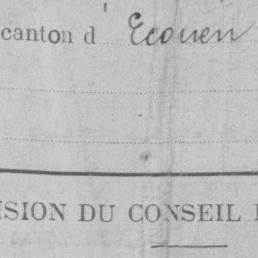 canton d' Ecouen
ISION DU CONSEIL